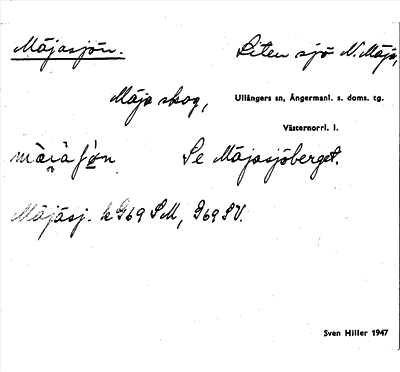 Måjasjön. Liten sjö N. Måja,
Måja skog, Ullångers sn, Ångermanl. s. doms. tg.
Västernorrl. l.
Se Måjasjöberget.
Måjåsj. k G69 SM, G69 SV.
Sven Hiller 1947